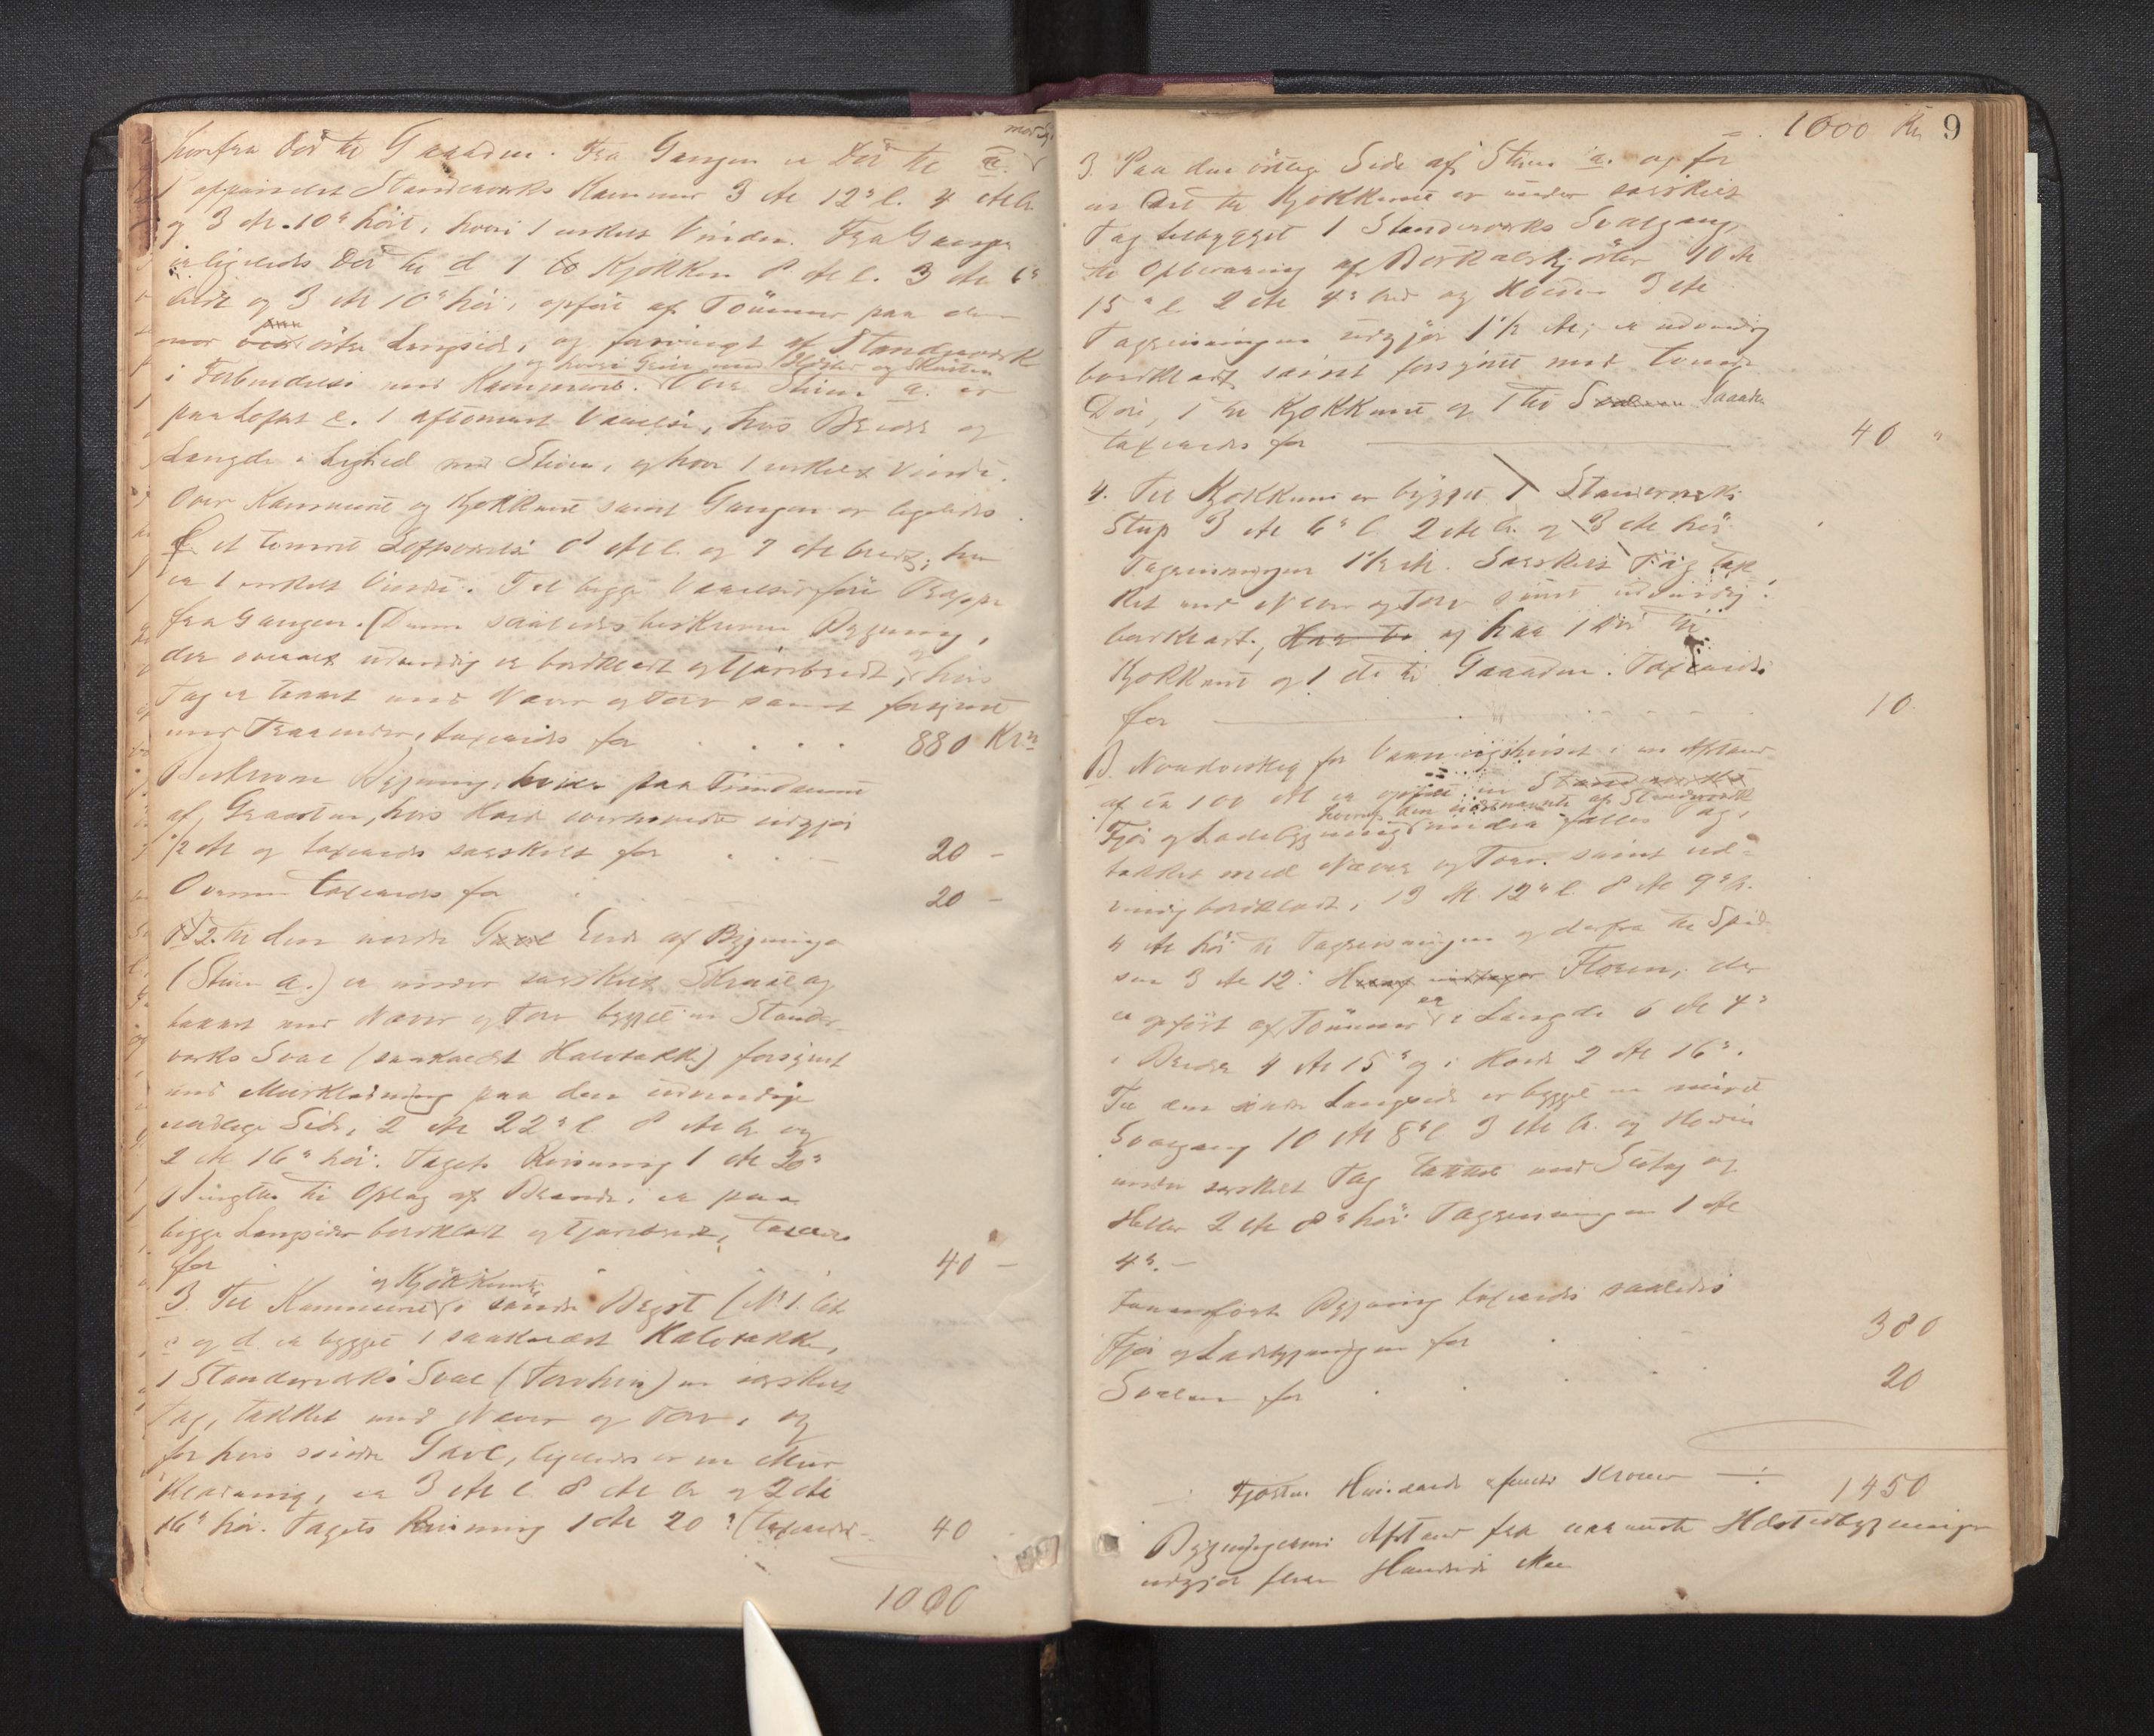 herfra Dør til Gaarden. Fra Gangen er Dør til c.
1 afpanelet Standerværks Kammer 3 Al 12" l. 4 Al b.
og 3 Al. 10" høit, hvori 1 enkelt Vindu. Fra Gangen
er ligeledes Dør til d 1 Kjøkken 8 Al l. 3 Al 6"
bredt og 3 Al 10" høi, opført af Tømmer paa den
østre Langside, og forøvrigt af Standerværk
i Forbindelse med Kammeret. Over Stuen a. er
paa Loftet e. 1 aftømret Værelse, hvis Bredde og
Længde i Lighed med Stuen, og hvor 1 enkelt Vindu.
Over Kammeret og Kjøkkenet samt Gangen er ligeledes
f et tømret Loftsværelse 8 Al l. og 7 Al bredt; her
er 1 enkelt Vindu. Til begge Værelser fører Trappe
fra Gangen. (Denne saaledes beskrevne Bygning,
der overalt udvendig er bordklædt og tjærebredt, og hvis
Tag er tækket med Næver og Torv samt forsynet
med Tagrender, taxeredes for . . . . 880 Kr.
Beskrevne Bygning, hviler paa Fundament
af Graasten, hvis Høide
1/2 Al og taxeredes særskilt for . . - 20 -
Ovnen taxeredes for . . 20 -
2. Til den nordre Ende af Bygningen
(Stuen a.) er under særskilt Skraatag
tækket med Næver og Torv bygget en Stander
værks Sval (saakaldet Halvtække) forsynet
med Murklædning paa den udvendige
nordlige Side, 2 Al 22" l 8 Al b og
2 Al 16" høi. Tagets Reisning 1 Al 20"
til Oplag af Brænde, er paa
begge Langsider bordklædt og tjærebredt, taxeredes
for . . 40 -
og Kjøkkenet
3. Til Kammeret i søndre Bygst (No 1. lit.
c og d. er bygget 1 saakaldet Halvtække,
1 Standerværks Sval (Torvhus) m særskilt
Tag, tækket med Næver og Torv, og
for hvis søndre Gavl, ligeledes er en Mur
klædning, er 3 Al l. 8 Al b og 2 Al
16" høi. Tagets Reisning 1 Al 20" (taxeredes - 40
1000
1000 Kr 9
3. Paa den østlige Side af Stuen a. og for
en Del til Kjøkkenet er under særskilt
Tag tilbygget 1 Standerværks Svalgang,
til Opbevaring af 10 Al
15" l. 2 Al 4" bred og Høiden 3 Al
Tagreisningen udgjør 1 1/2 Al; er udvendig
bordklædt samt forsynet med tvende
Døre, 1 til Kjøkkenet og 1 til Gaarden
taxeredes for 40 "
4. Til Kjøkkenet er bygget 1 Standerværks
3 Al 6" l. 2 Al b. og 3 Al høi
Tagreisningen 1 1/2 Al. Særskilt Tag tæk-
ket med Næver og Torv samt udvendig
bordklædt, og har 1 Dør til
Kjøkkenet og 1 do til Gaarden. Taxeredes
for 10.
B. Nordvestlig for Vaaningshuset i en Afstand
af ca 100 Al er opført en
hvoraf den sidstnævnte af Standerværk
Fjøs og Ladebygning under fælles Tag,
tækket med Næver og Torv samt ud-
vendig bordklædt, 19 Al 12" l. 8 Al 9" b.
4 Al høi til Tagreisningen og derfra til Spid-
sen 3 Al 12". Floren, der
er opført af Tømmer er i Længde 6 Al 4"
i Bredde 4 Al 15" og i Høide 2 Al 16".
Til den Langside er bygget en
Svalgang 10 Al 8" l 3 Al b. og Høiden
under særskilt Tag tækket med Sutag og
Heller 2 Al 8" høi Tagreisningen 1 Al
4". -
Bygning taxeredes saaledes
Fjøs og Ladebygningen for . . 380
Svalen for . . . . 20
Fjorten Hundrede femti Kroner ÷ 1450
Bygningernes Afstand fra nærmeste
udgjør flere Hundrede Alen